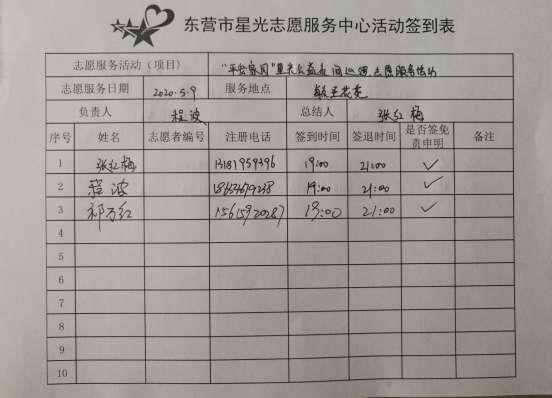 东营市星光志愿服务中心活动签到表
志愿服务活动（项目） "平安家园"星光公益夜间巡逻志愿服务活动
志愿服务日期 2020.5.9 服务地点
负责人 程波 总结人 张红梅
序号 姓名 志愿者编号 注册电话 签到时间 签退时间 是否签免责申明 备注
1 张红梅 13181959396 19:00 21:00 ✓
2 程波 19:00 21:00 ✓
3 祁万红 15615920287 19:00 21:00 ✓
4
5
6
7
8
9
10